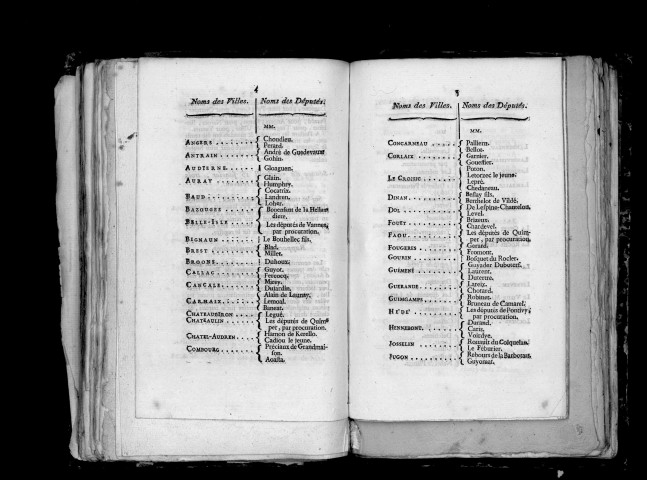 4
Noms des Villes. Noms des Députés.
MM.
ANGERS Choudieu.
Perard.
ANTRAIN André de Guodevaust
Gohin.
AUDIERNE Gloaguen.
AURAY Glain.
Humphry.
Cocatrix.
BAUD Landren.
Loher.
BAZOUGES Boncenfant de la Hellen-
diere.
BELLE-ISLE Les députés de Vannes,
par procuration.
BIGNAUN Le Bouthellec fils.
BREST Blad.
Millet.
BROONS Duhoux.
CALLAC Guyot.
Ferencq.
CANCALE Mirey.
Dujardin.
Alain de Launay.
CARHAIX Lemoal.
Baneat.
CHATEAUGIRON Legué.
CHATEAULIN Les députés de Quim-
per, par procuration.
CHATEL-AUDREN Harnon de Kerello.
Cadiou le jeune.
COMBOURG Préciaux de Grandmai-
son.
Aoasta.
5
Noms des Villes. Noms des Députés.
MM.
CONCARNEAU Palliern.
CORLAIX Bellor.
Garnier.
Gouessier.
LE CROISIC Poton.
Letorzec le jeune.
Lepré.
Chedaneau.
DINAN Bessay fils.
Berthelot de Vildé.
DOL De Lespine-Chantelou.
Level.
FOUET Briseux.
Chardevel.
FAOU Les députés de Quim-
per, par procuration.
FOUGERES Gerard.
Fromont.
GOURIN Bosquet du Rocler.
GUEMENÉ Guyader Dubotsef.
Laurent.
Dutertre.
GUERANDE Lareix.
Chotard.
GUINGAMP Robinot.
Bruneau de Camarel.
HÉDÉ Les députés de Pontivy,
par procuration.
HENNEBONT Durand.
Caris.
Voisdye.
JOSSELIN Rouxault du Colquesan.
Le Feburier.
JUGON Rebours de la Barbotais.
Guyomar.